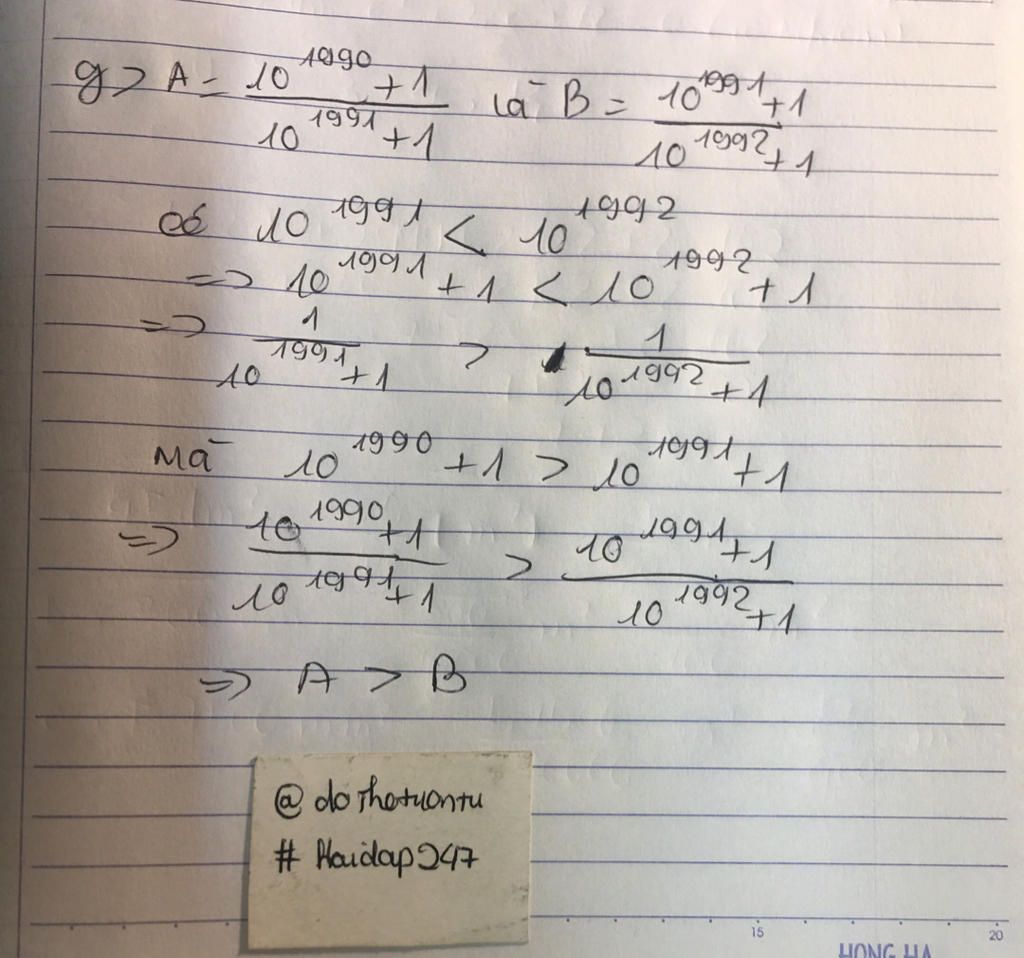 g> A = \frac{10^{1990}+1}{10^{1991}+1} là B = \frac{10^{1991}+1}{10^{1992}+1}
có 10^{1991} < 10^{1992}
=> 10^{1991} + 1 < 10^{1992} + 1
=> \frac{1}{10^{1991}+1} > \frac{1}{10^{1992}+1}
Mà 10^{1990} + 1 > 10^{1991} + 1
=> \frac{10^{1990}+1}{10^{1991}+1} > \frac{10^{1991}+1}{10^{1992}+1}
=> A > B
@dothetuantu
# Hoidap247
15 20
HONG HA